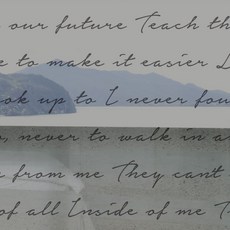 our future Teach th
e to make it easier L
ook up to I never fou
, never to walk in a
from me They cant
of all Inside of me T